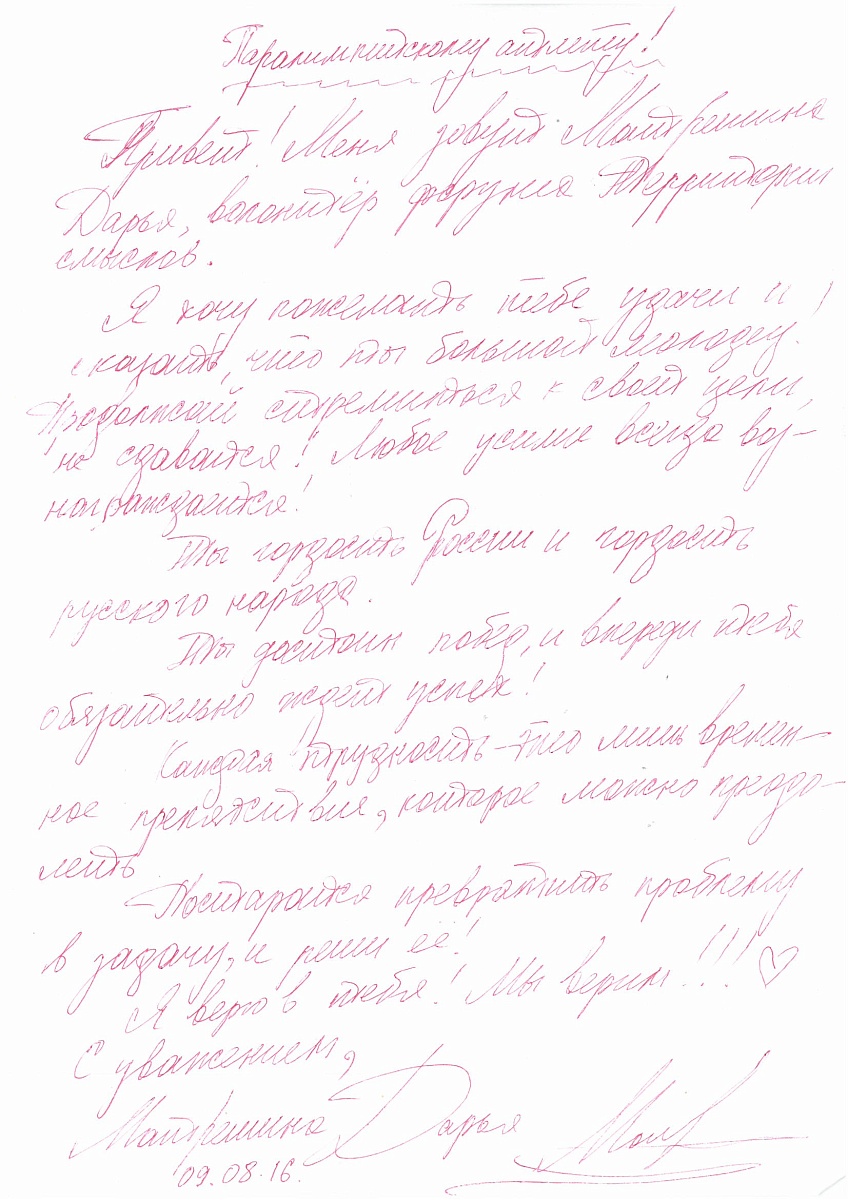 Паралимпийскому атлету!
Привет! Меня зовут Матрешина
Дарья, волонтёр форума Территории
смыслов.
Я хочу пожелать тебе удачи и
сказать, что ты большой молодец!
Продолжай стремиться к своей цели,
не сдавайся! Любое усилие всегда воз-
награждается!
Ты гордость России и гордость
русского народа.
Ты достоин побед, и впереди тебя
обязательно ждёт успех!
Каждая трудность – это лишь времен-
ное препятствие, которое можно преодо-
леть
Постарайся превратить проблему
в задачу, и реши её!
Я верю в тебя! Мы верим!!!
С уважением,
Матрешина Дарья
09.08.16.